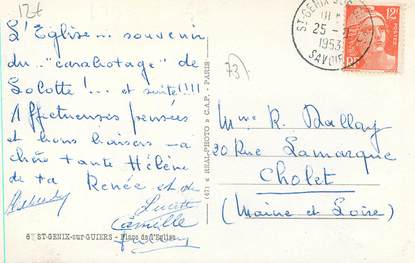 12t
L'Eglise... souvenir
du "carabotage" de
Lolotte!... et suite!!!!
Affectueuses pensées
et bons baisers à
chère tante Hélène
de ta Renée et de
Lucette
Camille
6 ST-GENIX-sur-GUIERS - Place de l'Eglise
(47) REAL-PHOTO C.A.P. - PARIS
73
ST-GENIX-SUR-
25 -
1953
SAVOIE
12F
POSTES
Mme R. Dallay
30 Rue Lamarque
Cholet
(Maine et Loire)